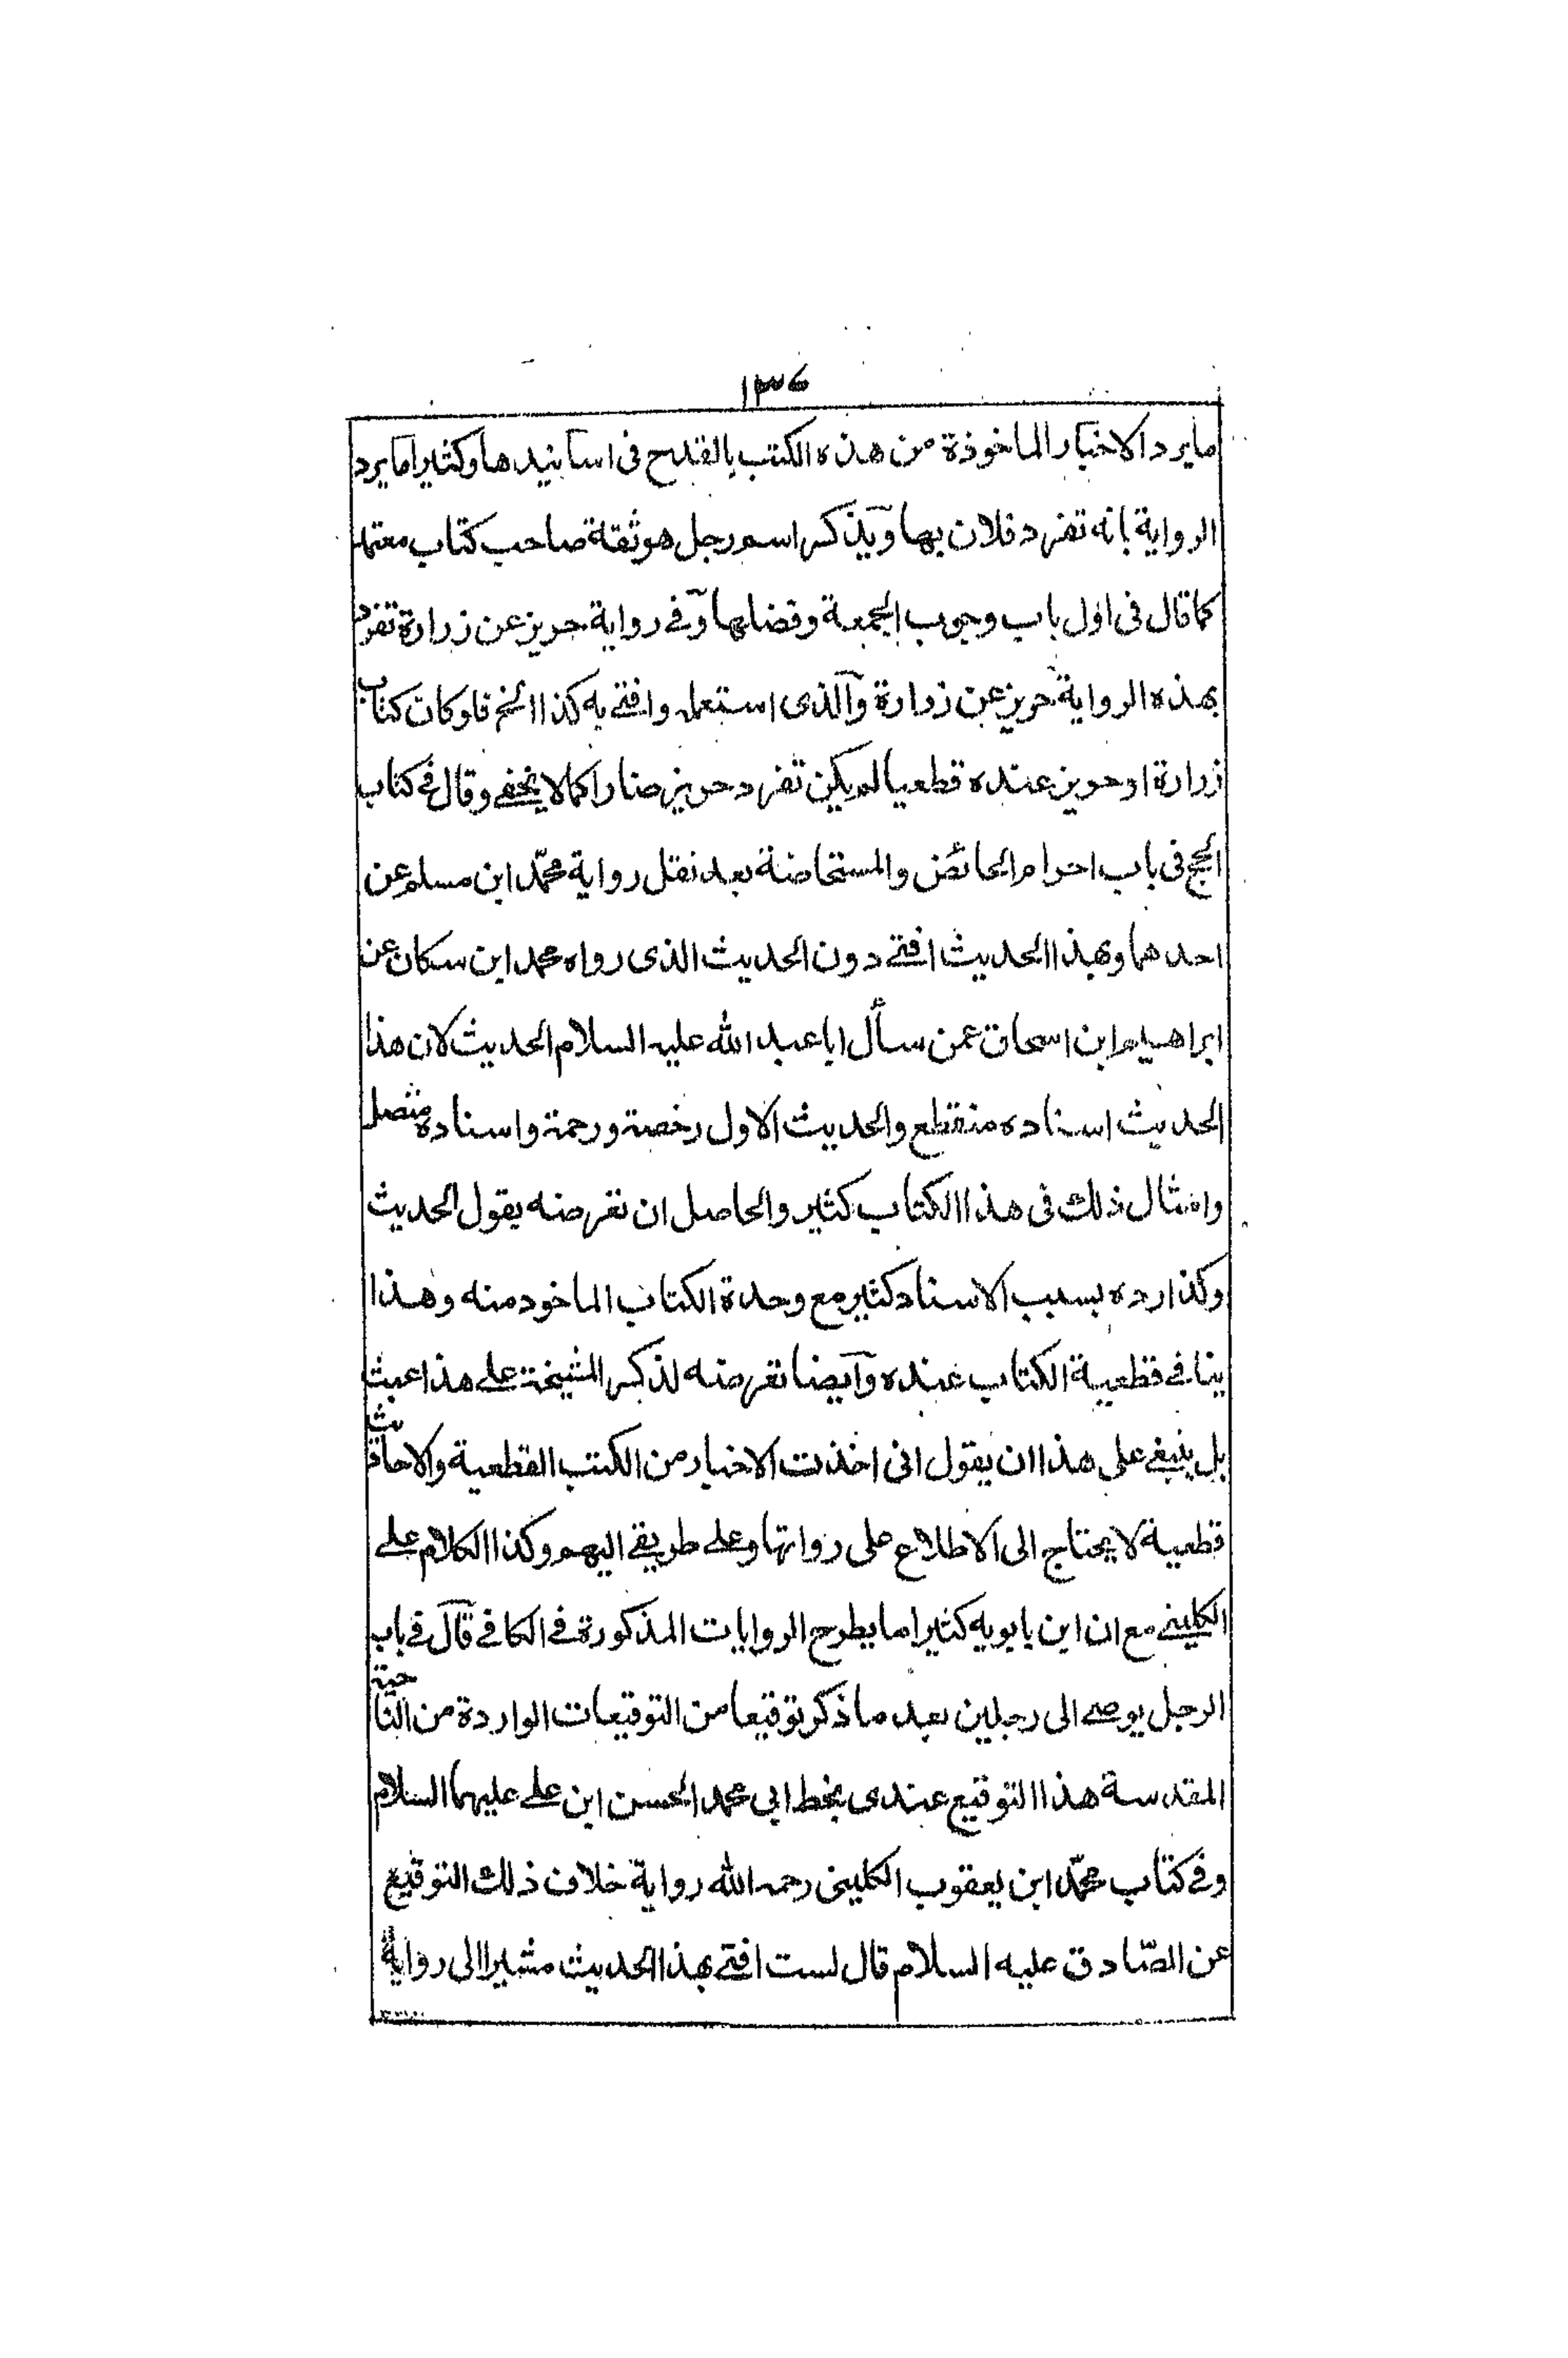 ١٣٦
ما يرد الاخبار الماخوذة من هذه الكتب بالقدح فى اسانيدها وكثيرا ما يرد
الرواية بانه تفرد فلان بها ويذكر اسم رجل هو ثقة صاحب كتاب معتمد
كما قال فى اول باب وجوب الجمعة وفضلها وفى رواية حريز عن زرارة تفرد
بهذه الرواية حريز عن زرارة والذى استعمله وافتى به كذا الخ فلو كان كتاب
زرارة او حريز عنده قطعيا لم يكن تفرد حريز ضارا كما لا يخفى وقال فى كتاب
الحج فى باب احرام الحائض والمستحاضة بعد نقل رواية محمّد ابن مسلم عن
احدهما وبهذا الحديث افتى دون الحديث الذى رواه محمد ابن سكان عن
ابراهيم ابن اسحاق عمن سأل ابا عبد الله عليه السلام الحديث لان هذا
الحديث اسناده منقطع والحديث الاول رخصة ورحمة واسناده متصل
وامثال ذلك فى هذا الكتاب كثير والحاصل ان تعرضه يقول الحديث
وكذا رده بسبب الاسناد كثير مع وحدة الكتاب الماخود منه وهذا
ينافى قطعية الكتاب عنده وايضا تعرضه لذكر المشيخة على هذا عبث
بل ينبغى على هذا ان يقول انى اخذت الاخبار من الكتب القطعية والاحاديث
قطعية لا يحتاج الى الاطلاع على رواتها وعلى طريقى اليهم وكذا الكلام على
الكلينى مع ان ابن بابويه كثيرا ما يطرح الروايات المذكورة فى الكافى قال فى باب
الرجل يوصى الى رجلين بعد ما ذكر توقيعا من التوقيعات الواردة من الناحية
المقدسة هذا التوقيع عندى بخط ابي محمد الحسن ابن على عليهما السلام
وفى كتاب محمّد ابن يعقوب الكلينى رحمه الله رواية خلاف ذلك التوقيع
عن الصّادق عليه السلام قال لست افتى بهذا الحديث مشيرا الى رواية